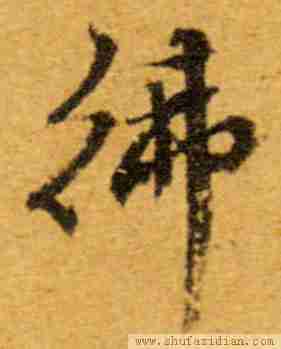 彿
www.shufazidian.com